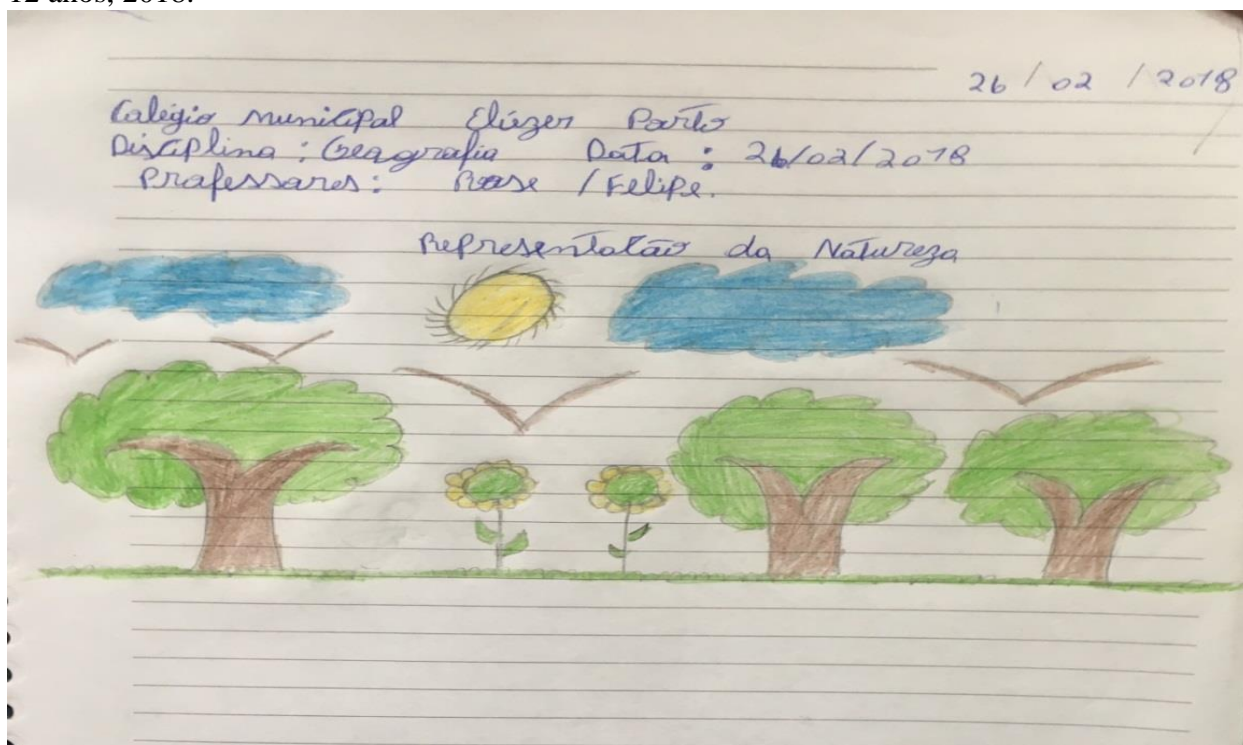 12 anos, 2018.
26 / 02 / 2018
Colégio Municipal Eliézer Porto
Disciplina : Geografia Data : 26/02/2018
Professores: Rose / Felipe.
Representatão da Natureza